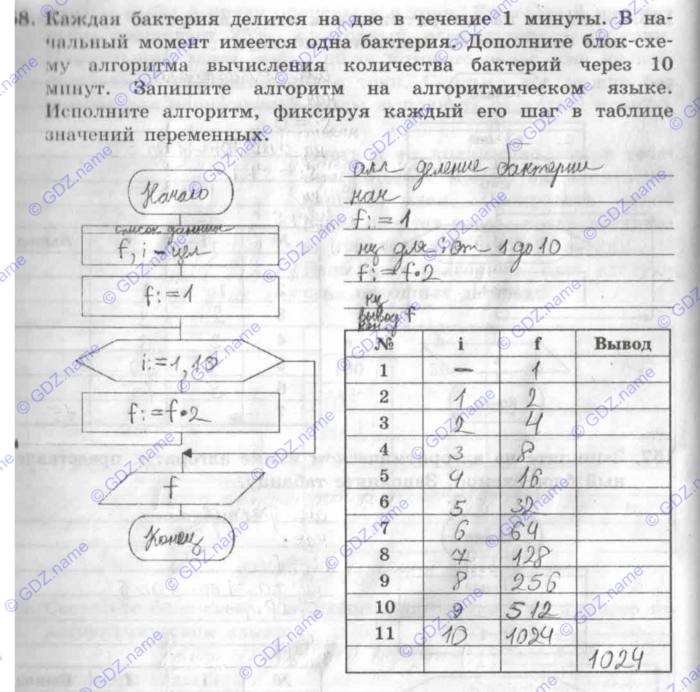 58. Каждая бактерия делится на две в течение 1 минуты. В на-
чальный момент имеется одна бактерия. Дополните блок-схе-
му алгоритма вычисления количества бактерий через 10
минут. Запишите алгоритм на алгоритмическом языке.
Исполните алгоритм, фиксируя каждый его шаг в таблице
значений переменных.
Начало
список данных
f, i – цел
f:=1
i:=1,10
f:=f•2
f
Конец
алг деление бактерии
нач
f:=1
нц для i от 1 до 10
f:=f•2
вывод f
№ i f Вывод
1 – 1
2 1 2
3 2 4
4 3 8
5 4 16
6 5 32
7 6 64
8 7 128
9 8 256
10 9 512
11 10 1024
1024
© GDZ.name